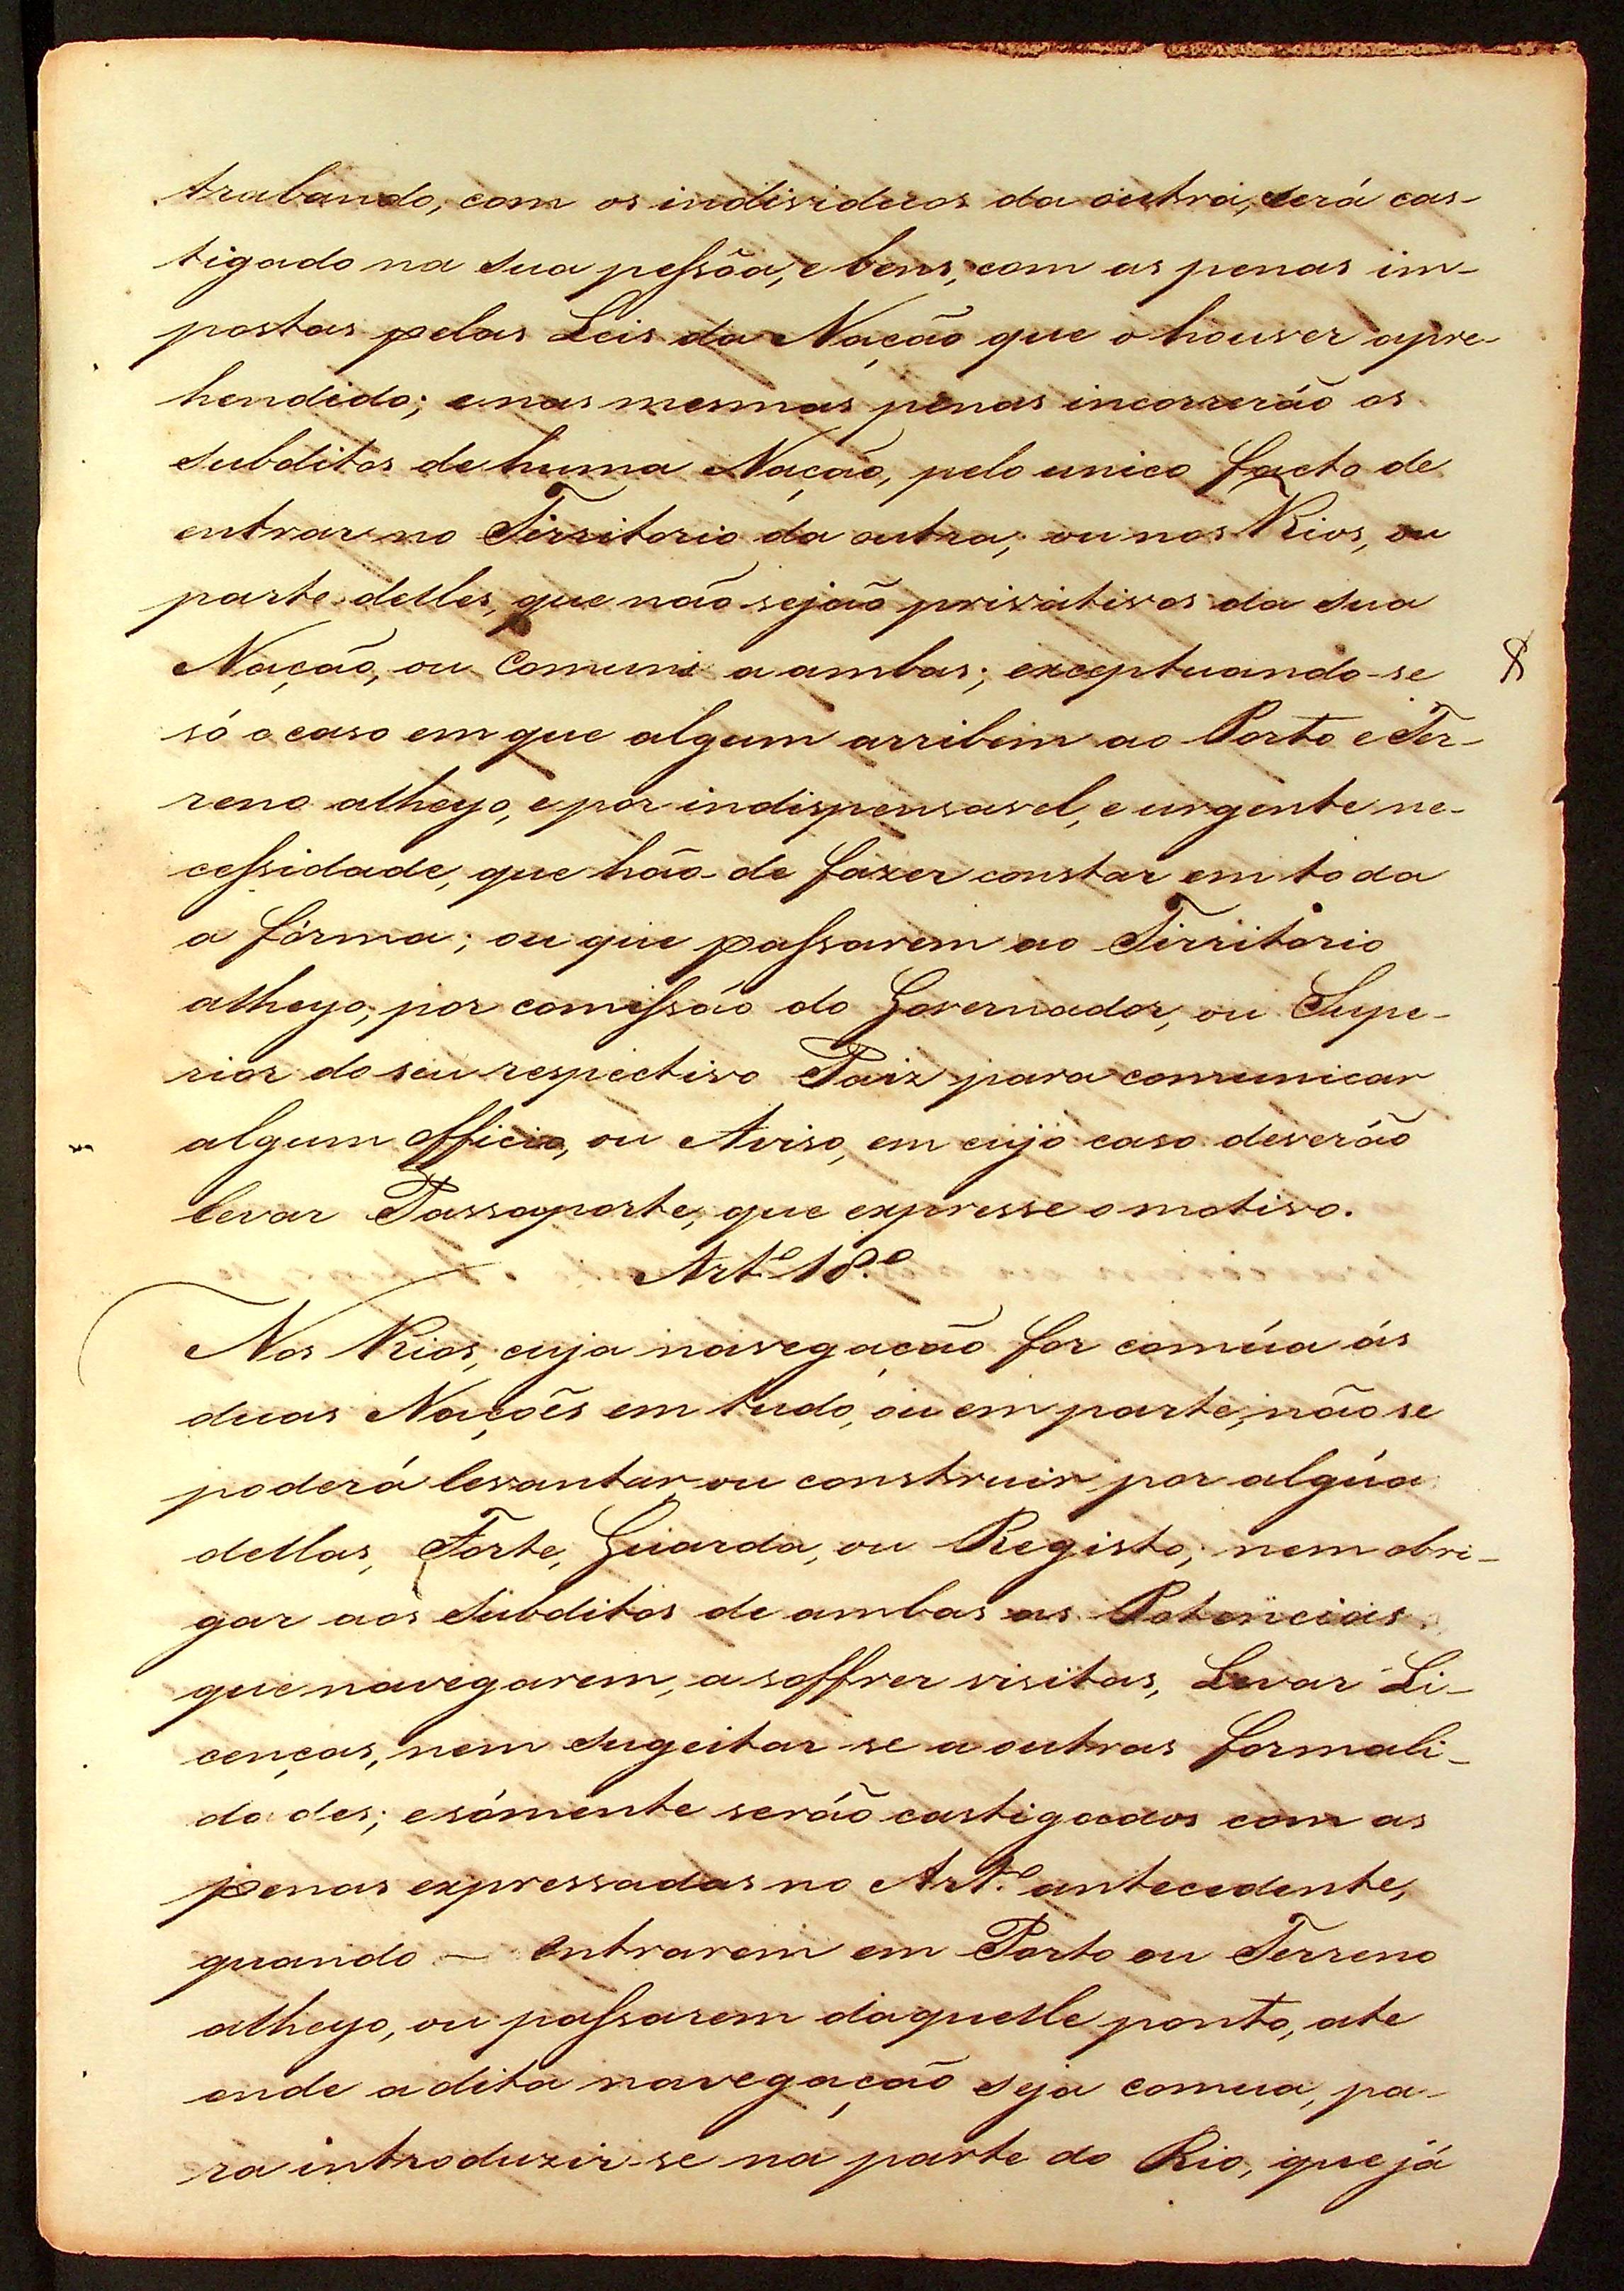 trabando, com os individuos da outra, será cas-
tigado na sua peſsôa, e bens, com as penas im-
postas pelas Leis da Nação que o houver apre-
hendido; e nas mesmas penas incorrerão os
subditos de huma Nação, pelo unico facto de
entrar no Territorio da outra; ou nos Rios, ou
parte delles, que não sejão privativos da sua
Nação, ou Comuns a ambas; exceptuando-se
só o caso em que algum arribem ao Porto e Ter-
reno alheyo, e por indispensavel, e urgente ne-
ceſsidade, que hão de fazer constar em toda
a fórma; ou que paſsarem ao Territorio
alheyo, por comiſsão do Governador, ou Supe-
rior do seu respectivo Paiz para comunicar
algum officio, ou Aviso, em cujo caso deverão
levar Passaporte, que expresse o motivo.
Art.º 18.º
Nos Rios, cuja navegação for comúa ás
duas Nações em tudo, ou em parte, não se
poderá levantar ou construir por algúa
dellas, Forte, Guarda, ou Registo; nem obri-
gar aos Subditos de ambas as Potencias
que navegarem, a soffrer visitas, Levar Li-
cenças, nem sugeitar-se a outras formali-
dades; e sómente serão castigados com as
penas expressadas no Art.º antecedente,
quando - entrarem em Porto ou Terreno
alheyo, ou paſsarem daquelle ponto, ate
onde a dita navegação seja comua, pa-
ra introduzir-se na parte do Rio, que já